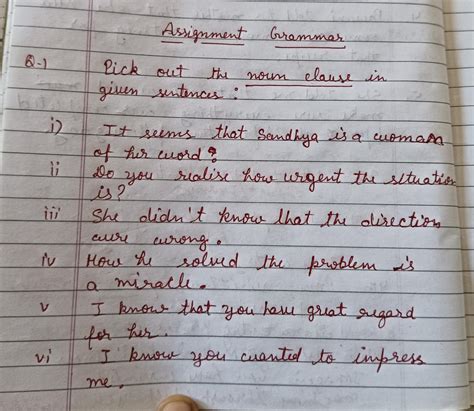 Assignment Grammar
Q-1 Pick out the noun clause in
given sentences :
i) It seems that Sandhya is a woman
of her word ?
ii Do you realise how urgent the situation
is ?
iii She didn't know that the direction
were wrong .
iv How he solved the problem is
a miracle .
v I know that you have great regard
for her .
vi I know you wanted to impress
me .